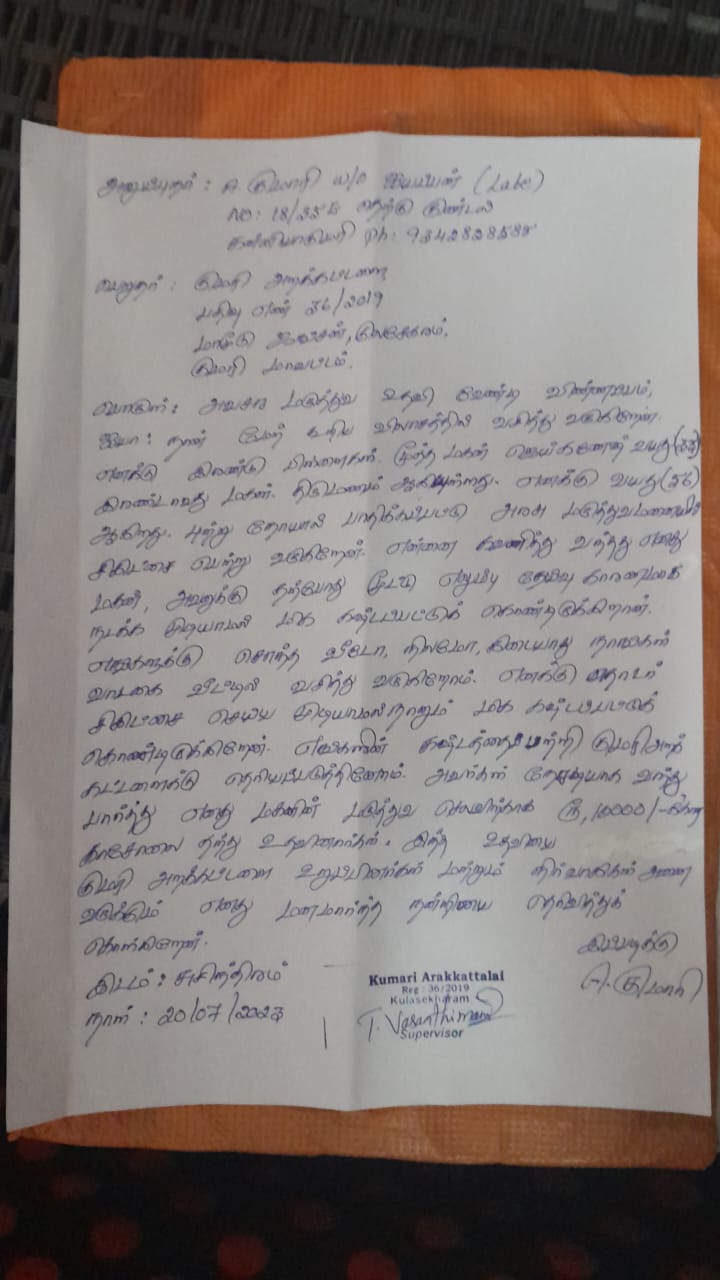 அனுப்புநர் : A. குமாரி w/o ஐயப்பன் (Late)
NO: 18/25 தெற்கு குண்டல்
கன்னியாகுமரி Ph:
பெறுநர் : குமரி அறக்கட்டளை,
பதிவு எண் 36/2019
குலசேகரம்,
குமரி மாவட்டம்.
பொருள் : அவசர மருத்துவ உதவி வேண்டி விண்ணப்பம்,
ஐயா : நான் மேற் கூறிய விலாசத்தில் வசித்து வருகிறேன்.
எனக்கு இரண்டு பிள்ளைகள். மூத்த மகன் வயது (33)
இரண்டாவது மகள். திருமணம் ஆகியுள்ளது. எனக்கு வயது (56)
ஆகிறது. புற்று நோயால் பாதிக்கப்பட்டு அரசு மருத்துவமனையில்
சிகிட்சை பெற்று வருகிறேன். என்னை கவனித்து வந்தது எனது
மகன், அவனுக்கு தற்போது மூட்டு எலும்பு தேய்வு காரணமாக
நடக்க முடியாமல் மிக கஷ்டப்பட்டுக் கொண்டிருக்கிறான்.
எங்களுக்கு சொந்த வீடோ, நிலமோ, கிடையாது நாங்கள்
வாடகை வீட்டில் வசித்து வருகிறோம். எனக்கு தொடர்
சிகிட்சை செய்ய முடியாமல் நானும் மிக கஷ்டப்பட்டுக்
கொண்டிருக்கிறேன். எங்களின் கஷ்டத்தைப்பற்றி குமரி அறக்
கட்டளைக்கு தெரியப்படுத்தினோம். அவர்கள் நேரடியாக வந்து
பார்த்து எனது மகனின் மருத்துவ செலவிற்காக ரூ, 10000/-க்கான
காசோலை தந்து உதவினார்கள். இந்த உதவியை
குமரி அறக்கட்டளை உறுப்பினர்கள் மற்றும் நிர்வாகிகள் அனை
வருக்கும் எனது மனமார்ந்த நன்றியை தெரிவித்துக்
கொள்கிறேன்.
இப்படிக்கு
A. குமாரி
இடம் : சுசீந்திரம்
நாள் : 20/07/2023
Kumari Arakkattalai
Reg : 36/2019
Kulasekharam
T. Vasanthi
Supervisor